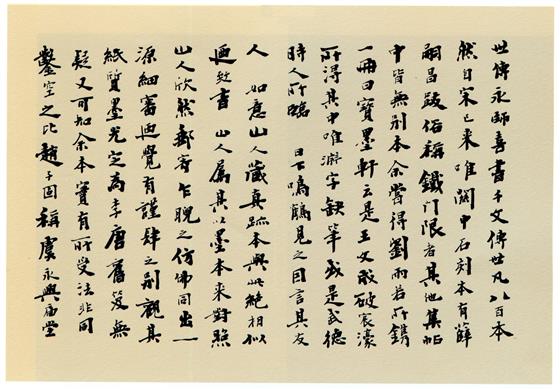 世傳永師喜書千文傳世凡八百本
然自宋已来唯關中石刻本有薛
嗣昌跋俗稱鐵門限者其他集帖
中皆無別本余嘗得劉雨若所鐫
一冊曰寶墨軒云是王文成破宸濠
所得其中唯淵字缺筆或是武德
時人所臨 日下鳴鶴見之因言其友
人 如意山人藏真跡本與此絕相似
迺致書 山人属其以墨本来對照
山人欣然郵寄乍睨之仿佛同出一
源細審迺覺有謹肆之別觀其
紙質墨光定為李唐舊笈無
疑又可知余本實有所受法非同
鑿空之比趙子固稱虞永興廟堂